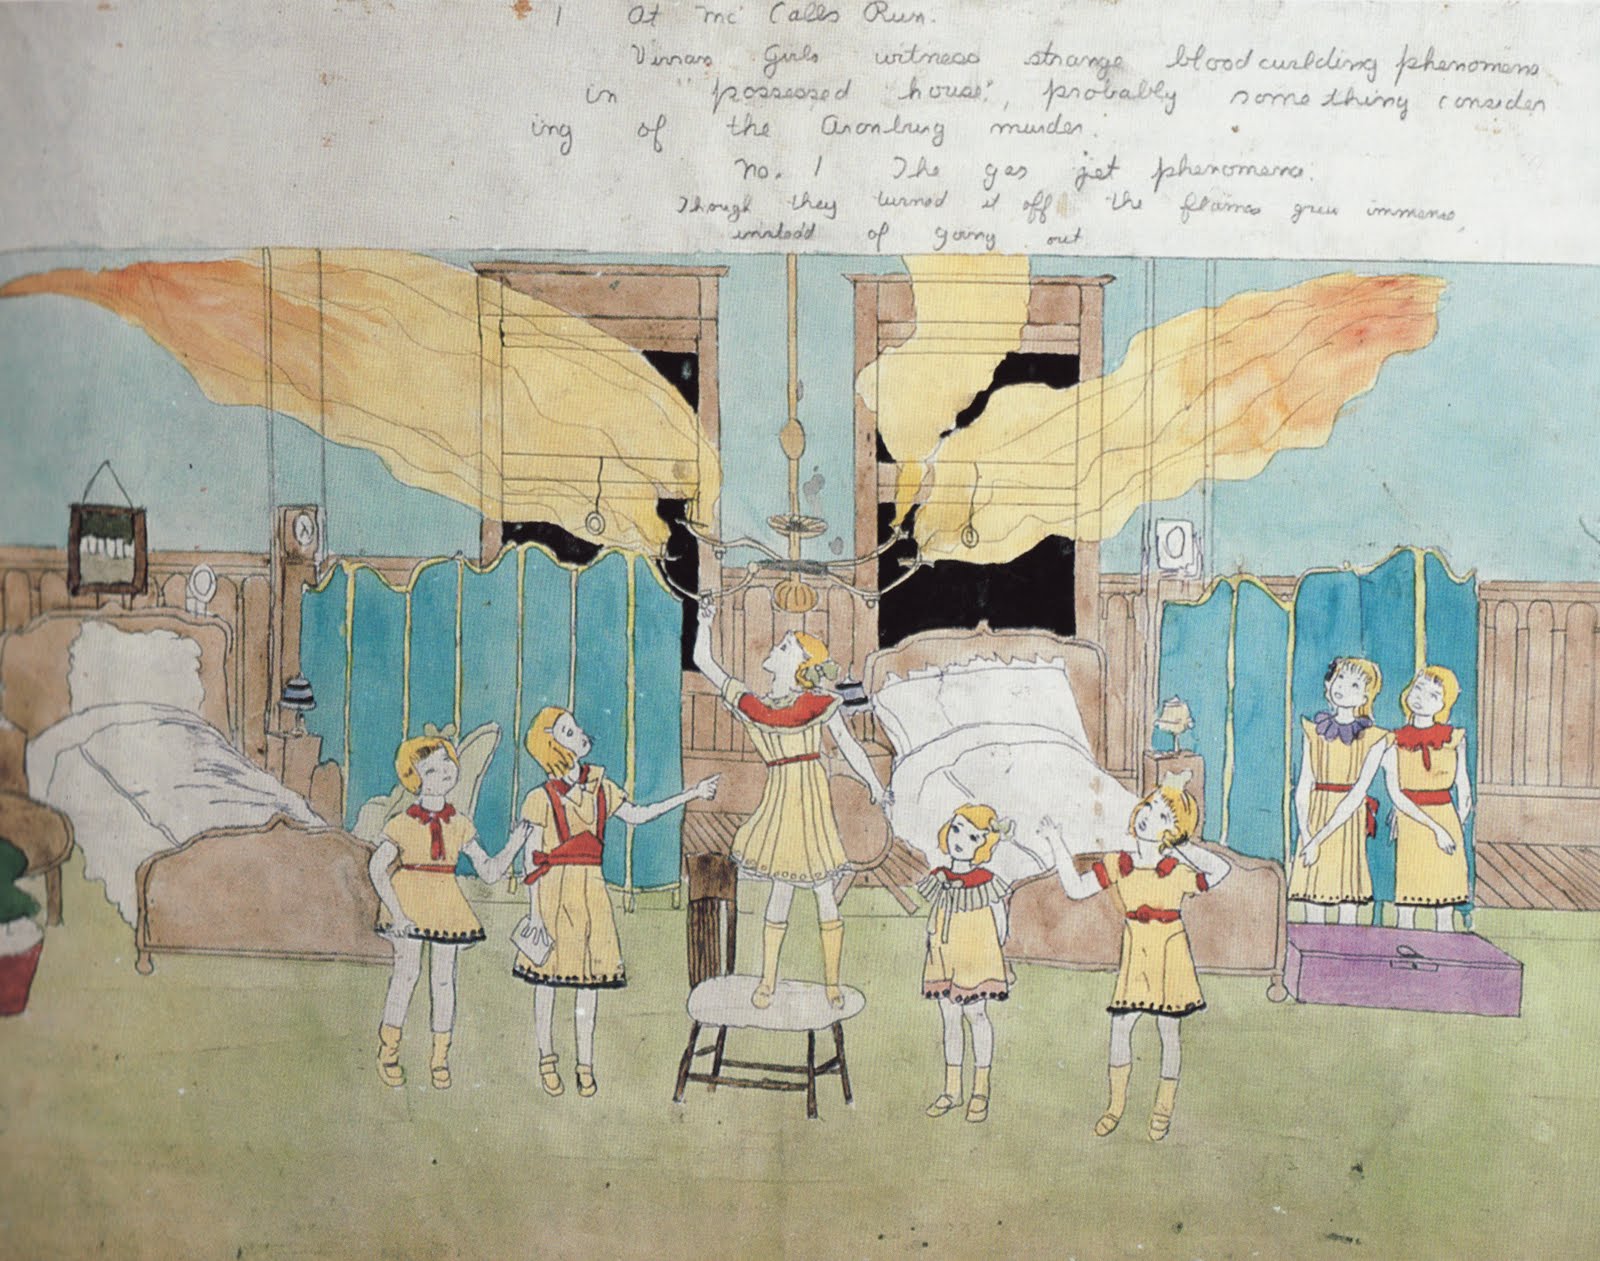 1 At Mc Calls Run.
Vivian Girls witness strange bloodcurlding phenomena
in "possessed house", probably something consider
ing of the Aronburg murder.
No. 1 The gas jet phenomena.
Though they turned it off the flames grew immense,
instead of going out